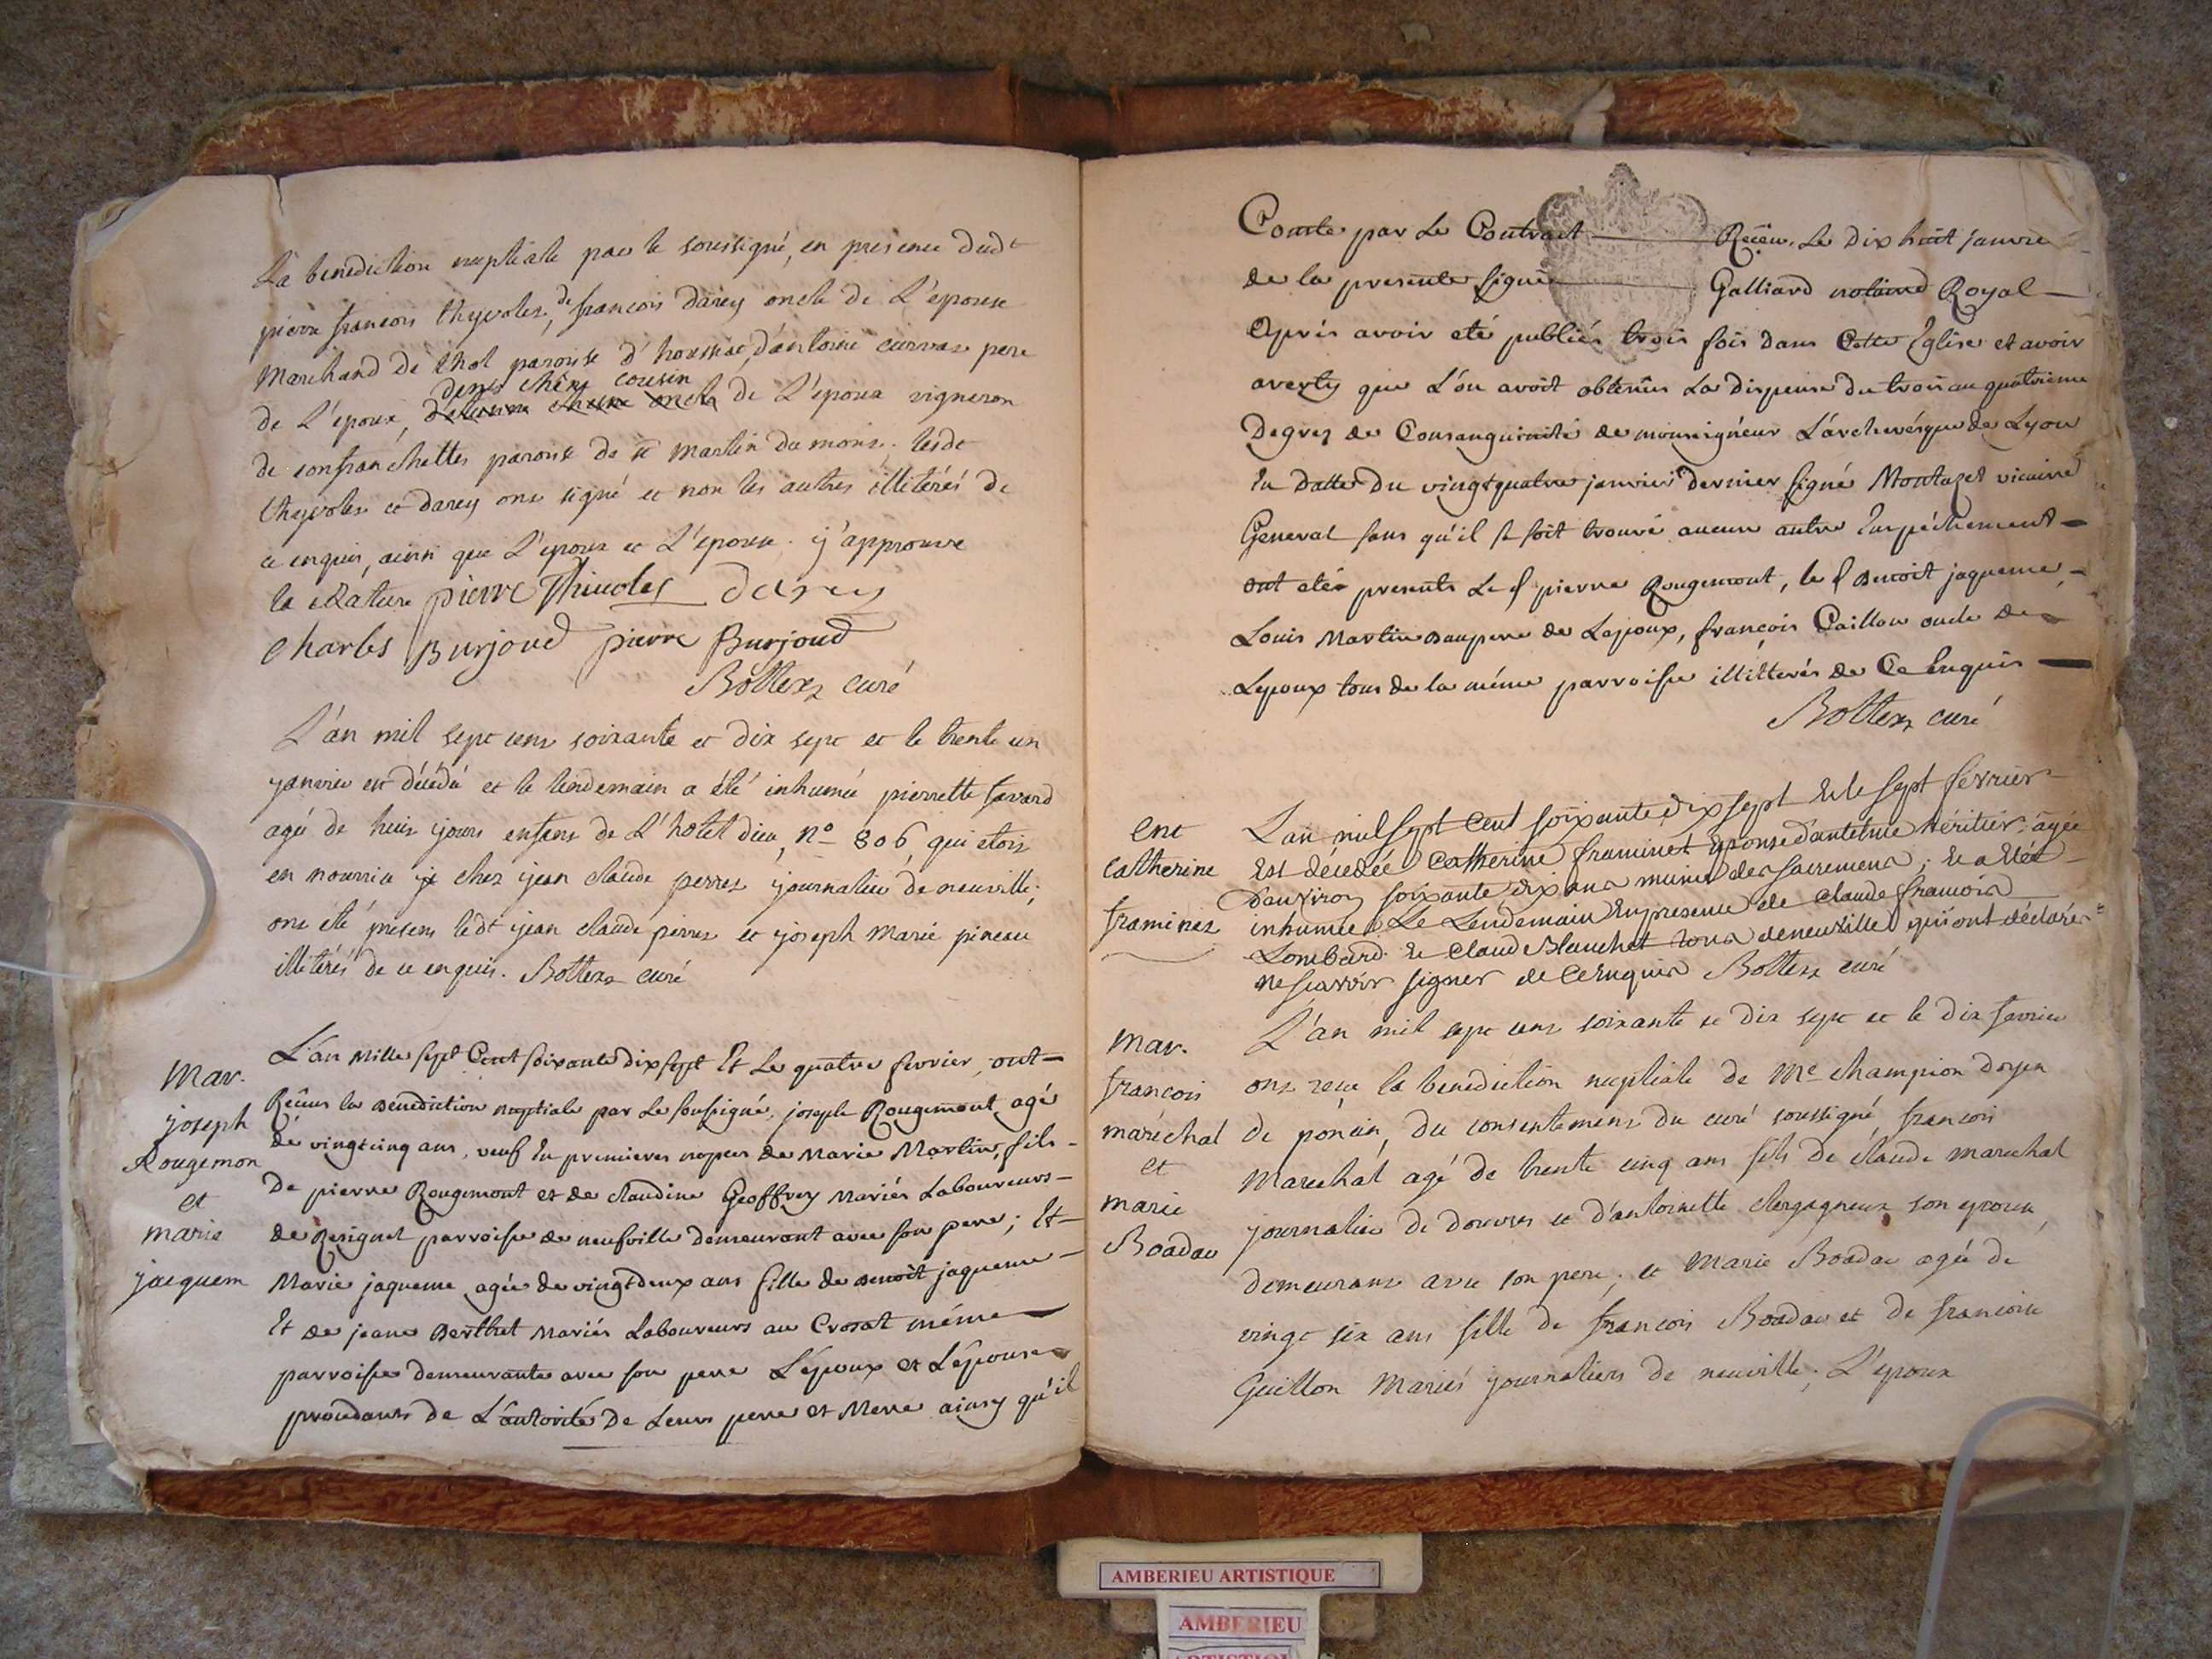 La benediction nuptiale par le soussigné, en presence dudt
pierre francois thyvoles, de francois darey oncle de L'epouse
Marchand de thol paroisse d'hauteriv, d'antoine curvas pere
denis chêne cousin
de L'epoux, de L'epoux vigneron
de confranchettes paroisse de st martin du mont. lesdt
thyvoles et darey ont signé et non les autres illiterés de
ce enquis, ainsi que L'epoux et L'epouse. j'approuve
la rature pierre Thivoles darey
Charles Burjoud pierre Burjoud
Bottex curé
L'an mil sept cent soixante et dix sept et le trente un
janvier est décédé et le lendemain a été inhumée pierrette favard
agé de huit jours enfant de L'hotel dieu, n° 806, qui etoit
en nourrice chez jean claude perret journalier de neuville;
ont été presens ledt jean claude perret et joseph marie pineau
illiterés de ce enquis. Bottex curé
Mar.
joseph
Rougemon
et
marie
jacquem
L'an Mille sept Cent soixante dix sept Et Le quatre fevrier, ont
Reçeus la Benediction nuptiale par Le soussigné, joseph Rougemont agé
de vingt cinq ans, veuf En premieres nopces de Marie Martin, fils
De pierre Rougemont et de claudine Geoffrey Mariés Laboureurs
de Resignel parroisse de neufville demeurant avec son pere; Et
Marie jaqueme agée de vingt deux ans fille de Benoît jaqueme
Et de jeane Berthet Mariés Laboureurs au Crosat méme
parroisse demeurante avec son pere L'époux et L'épouse
procedants de L'autorité de Leurs pere et Mere ainsy qu'il
Conste par Le Contract Reçeu Le Dix huit janvie
de la presente signé Galliard notaire Royal
Après avoir eté publiés trois fois dans Cette Eglise et avoir
averty que L'on avoit obtenûs La dispense du trois au quatrieme
Degrez de Consanguinité de monseigneur L'archevésque de Lyon
En datte du vingt quatre janvier dernier signé Montazet vicaire
General sans qu'il se soit trouvé aucun autre Empéchement
ont eté presents Le s pierre Rougemont, le s Benoit jaqueme,
Louis Martin Beaupere de Lepoux, françois Caillon oncle de
Lepoux tous de la méme parroisse illitterés de Ce Enquis
Bottex curé
ent
catherine
framinet
L'an mil sept Cent soixante dix sept Et le sept février
Est décédée Catherine framinet eponse d'antoine héritier, agée
D'environ soixante dix ans munie des sacremens; Et a Eté
inhumée Le Lendemain En presence de claude francois
Lombard Et Claud Blanchet tous de neuville qui ont déclaré
ne scavoir signer de Ce Enquis Bottex curé
Mar.
francois
maréchal
et
marie
Boadac
L'an mil sept cent soixante et dix sept et le dix fevrier
ont reçu la benediction nuptiale de Me champion doyen
de poncin, du consentement du curé soussigné, francois
Marechal agé de trente cinq ans fils de claude marechal
journalier de douvres et d'antoinette clergagneux son epouse,
demeurant avec son pere; et Marie Boadac agée de
vingt six ans fille de francois Boadac et de francoise
Guillon Mariés journaliers de neuville; L'epoux
AMBERIEU ARTISTIQUE
AMBERIEU
ARTISTIQU